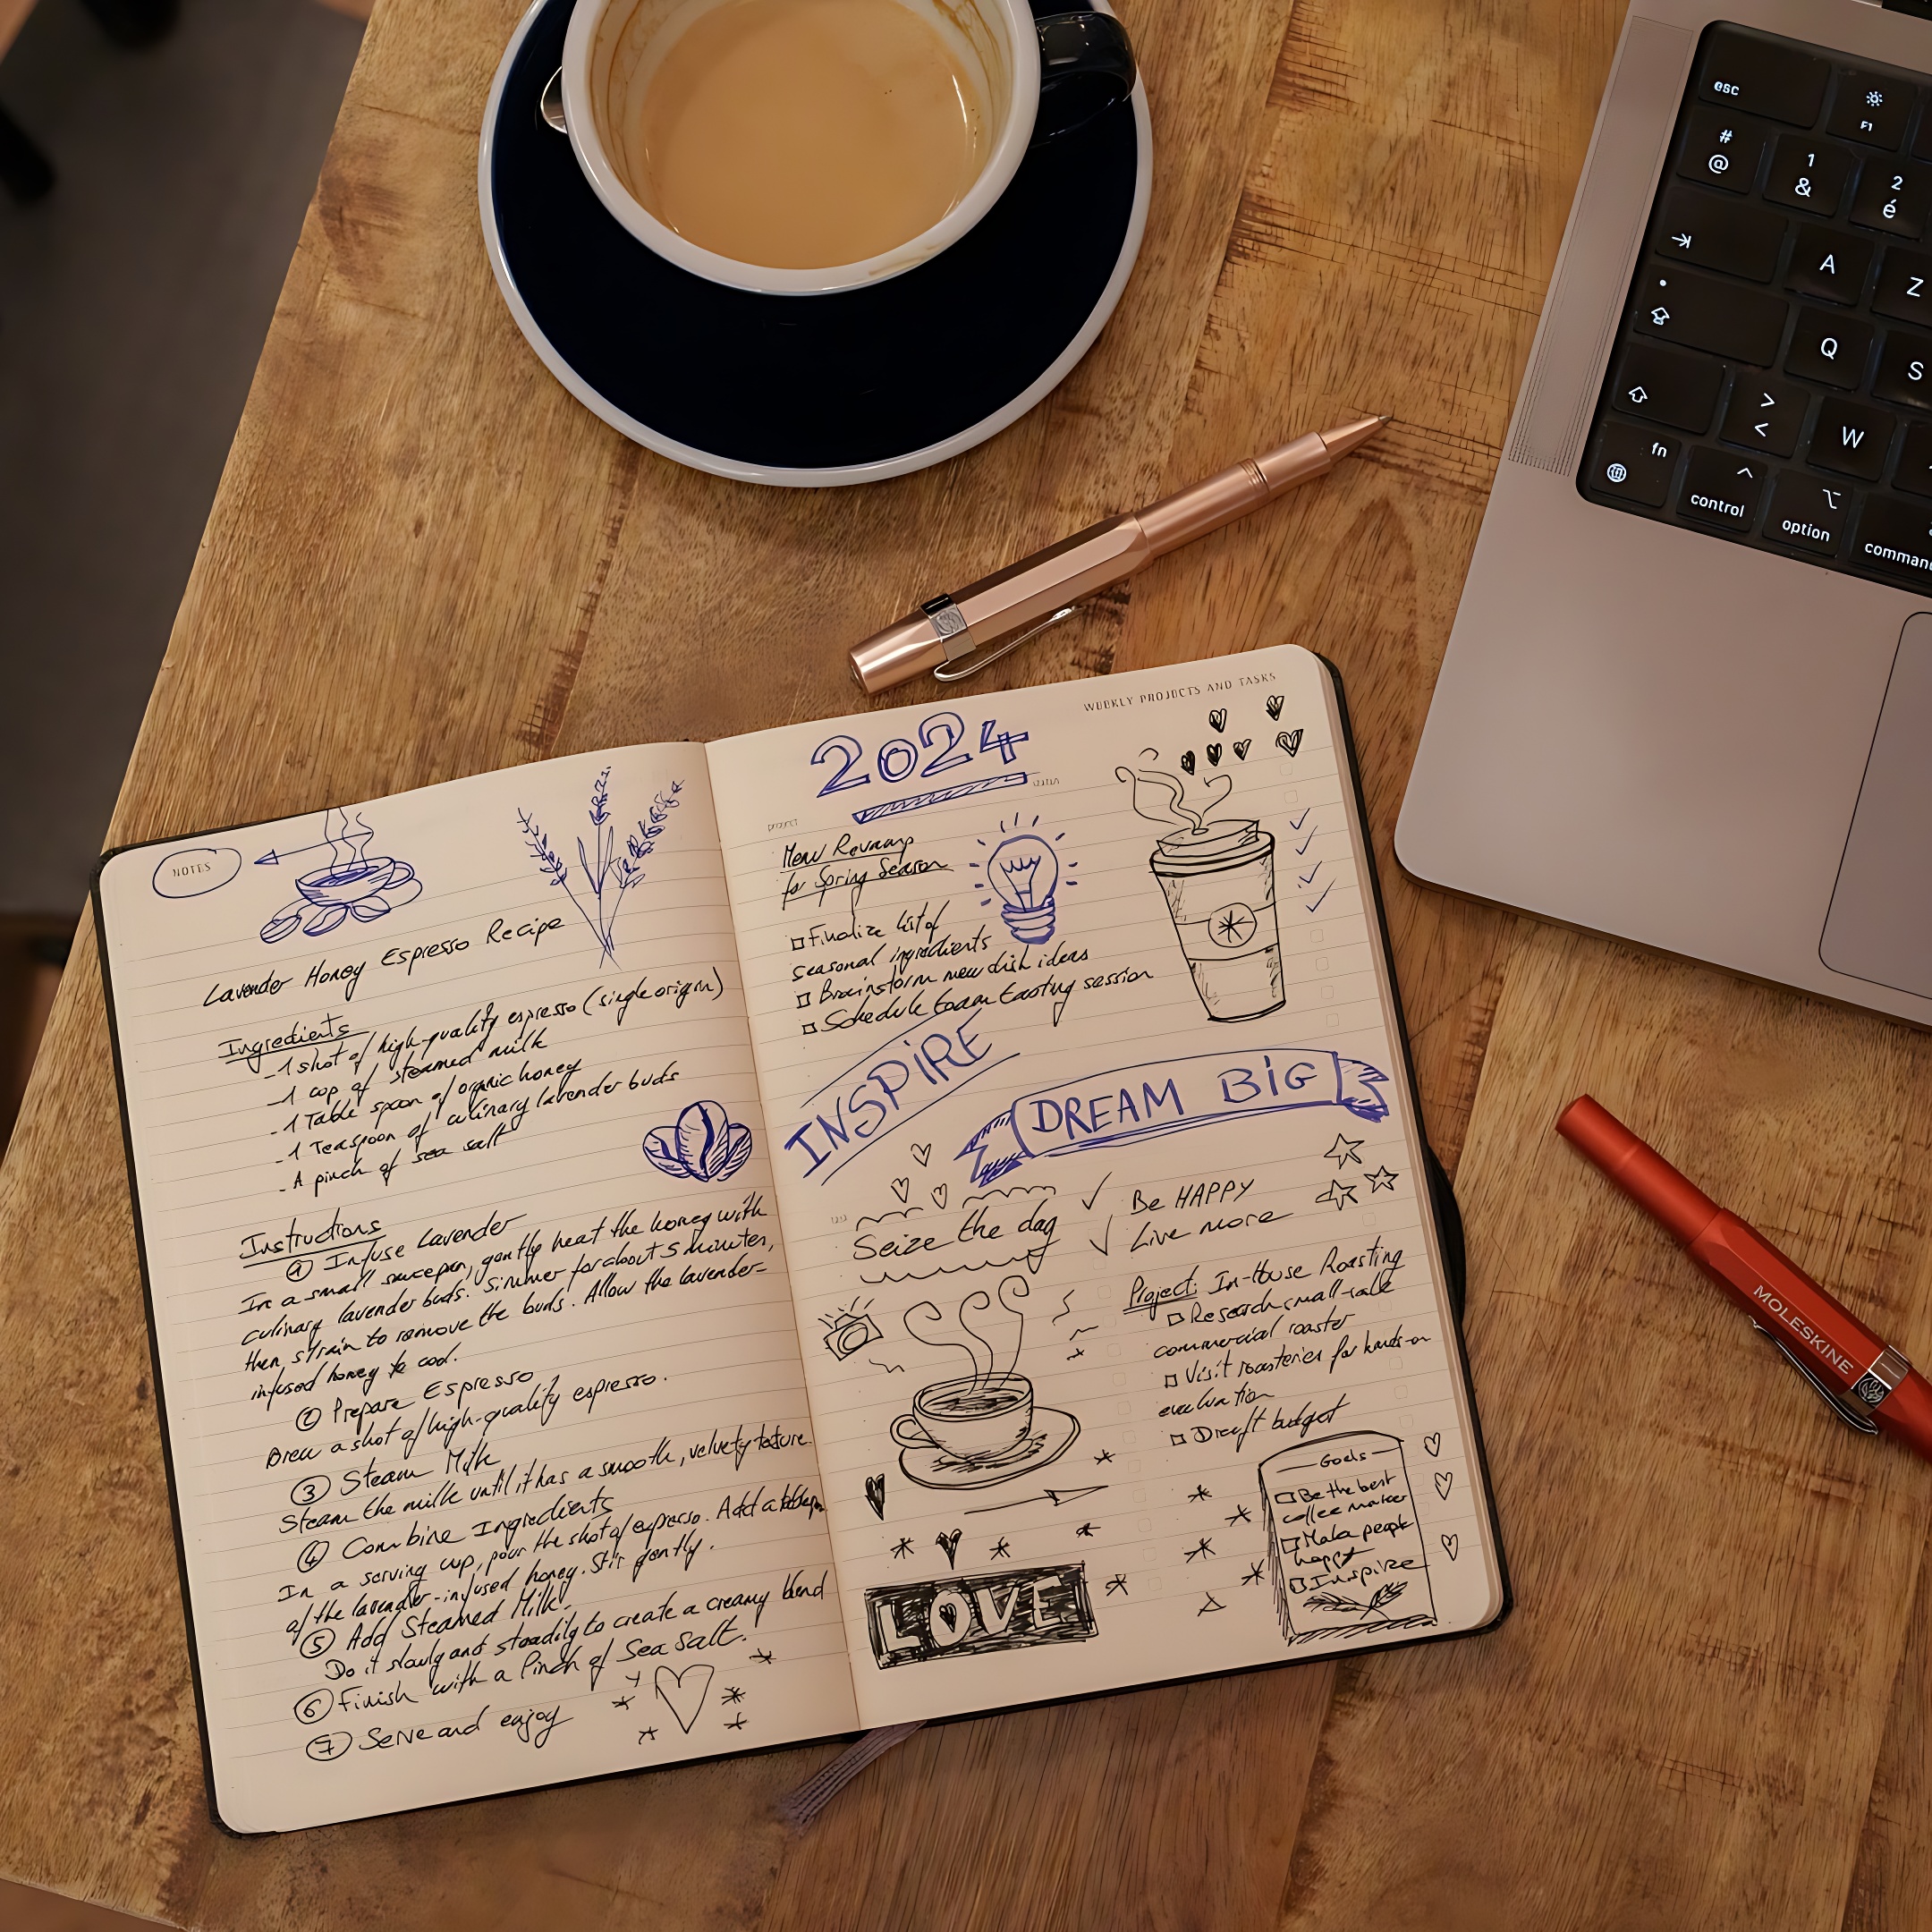 esc
F1
#
@
1
&
2
é
A
Z
Q
S
>
<
W
fn
control
option
comman
MOLESKINE
NOTES
Lavender Honey Espresso Recipe
Ingredients
- 1 shot of high-quality espresso (single origin)
- 1 cop of steamed milk
- 1 Table spoon of organic honey
- 1 Teaspoon of culinary lavender buds
- A pinch of sea salt
Instructions
1 Infuse Lavender
In a small saucepan, gently heat the honey with
culinary lavender buds. Simmer for about 5 minutes,
then strain to remove the buds. Allow the lavender-
infused honey to cool.
2 Prepare Espresso
Brew a shot of high-quality espresso.
3 Steam Milk
Steam the milk until it has a smooth, velvety texture.
4 Combine Ingredients
In a serving cup, pour the shot of espresso. Add a
of the lavender-infused honey. Stir gently.
5 Add Steamed Milk.
Do it slowly and steadily to create a creamy blend
6 Finish with a Pinch of Sea Salt.
7 Serve and enjoy
WEEKLY PROJECTS AND TASKS
2024
project
Menu Revamp
for Spring Season
Finalize list of
seasonal ingredients
Brainstorm new dish ideas
Schedule team tasting session
INSPIRE
DREAM BIG
Seize the day
Be HAPPY
Live more
Project: In-House Roasting
Research small-scale
commercial roaster
Visit roasteries for hands-on
evaluation
Draft budget
Goals
Be the best
coffee maker
Make people
happy
Inspire
LOVE